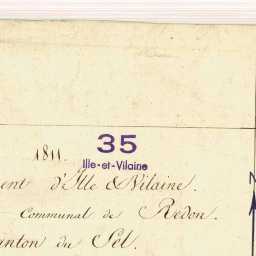 35
1811.
Ille-et-Vilaine
ent d'Ille & Vilaine.
N
Communal de Redon.
anton du Sel.